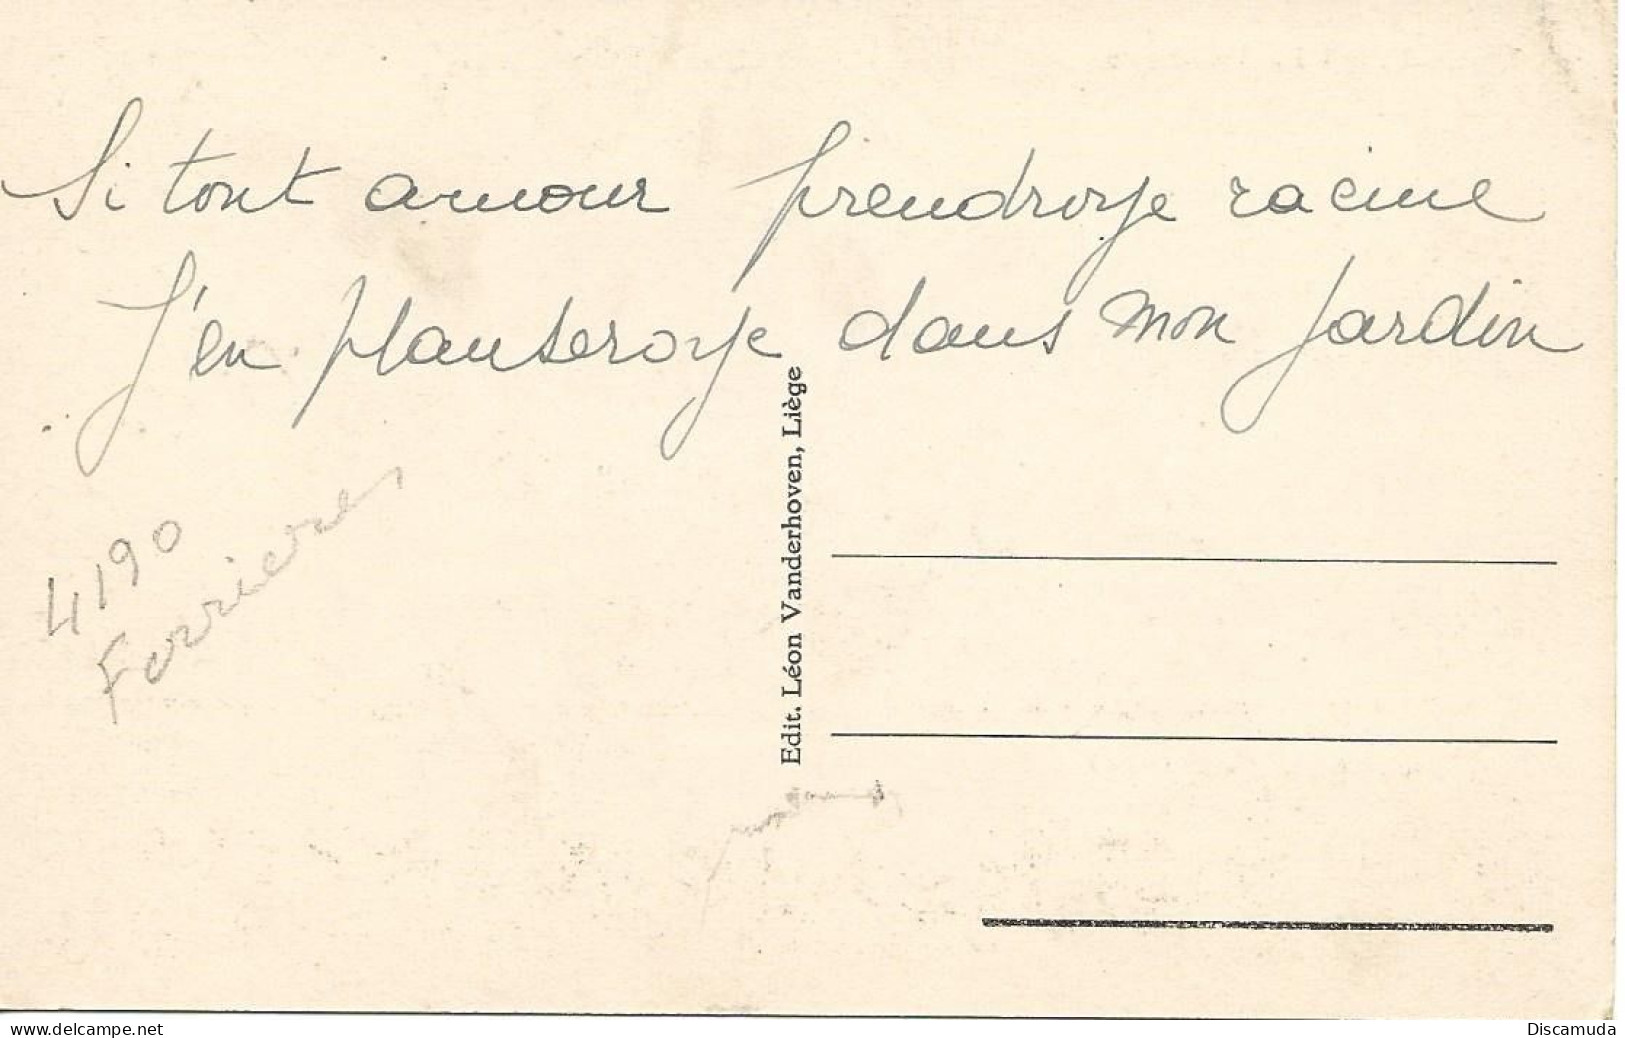 Si tout amour prendroye racine
J'en planteroye dans mon jardin
4190
Ferrieres
Edit. Léon Vanderhoven, Liège
www.delcampe.net
Discamuda